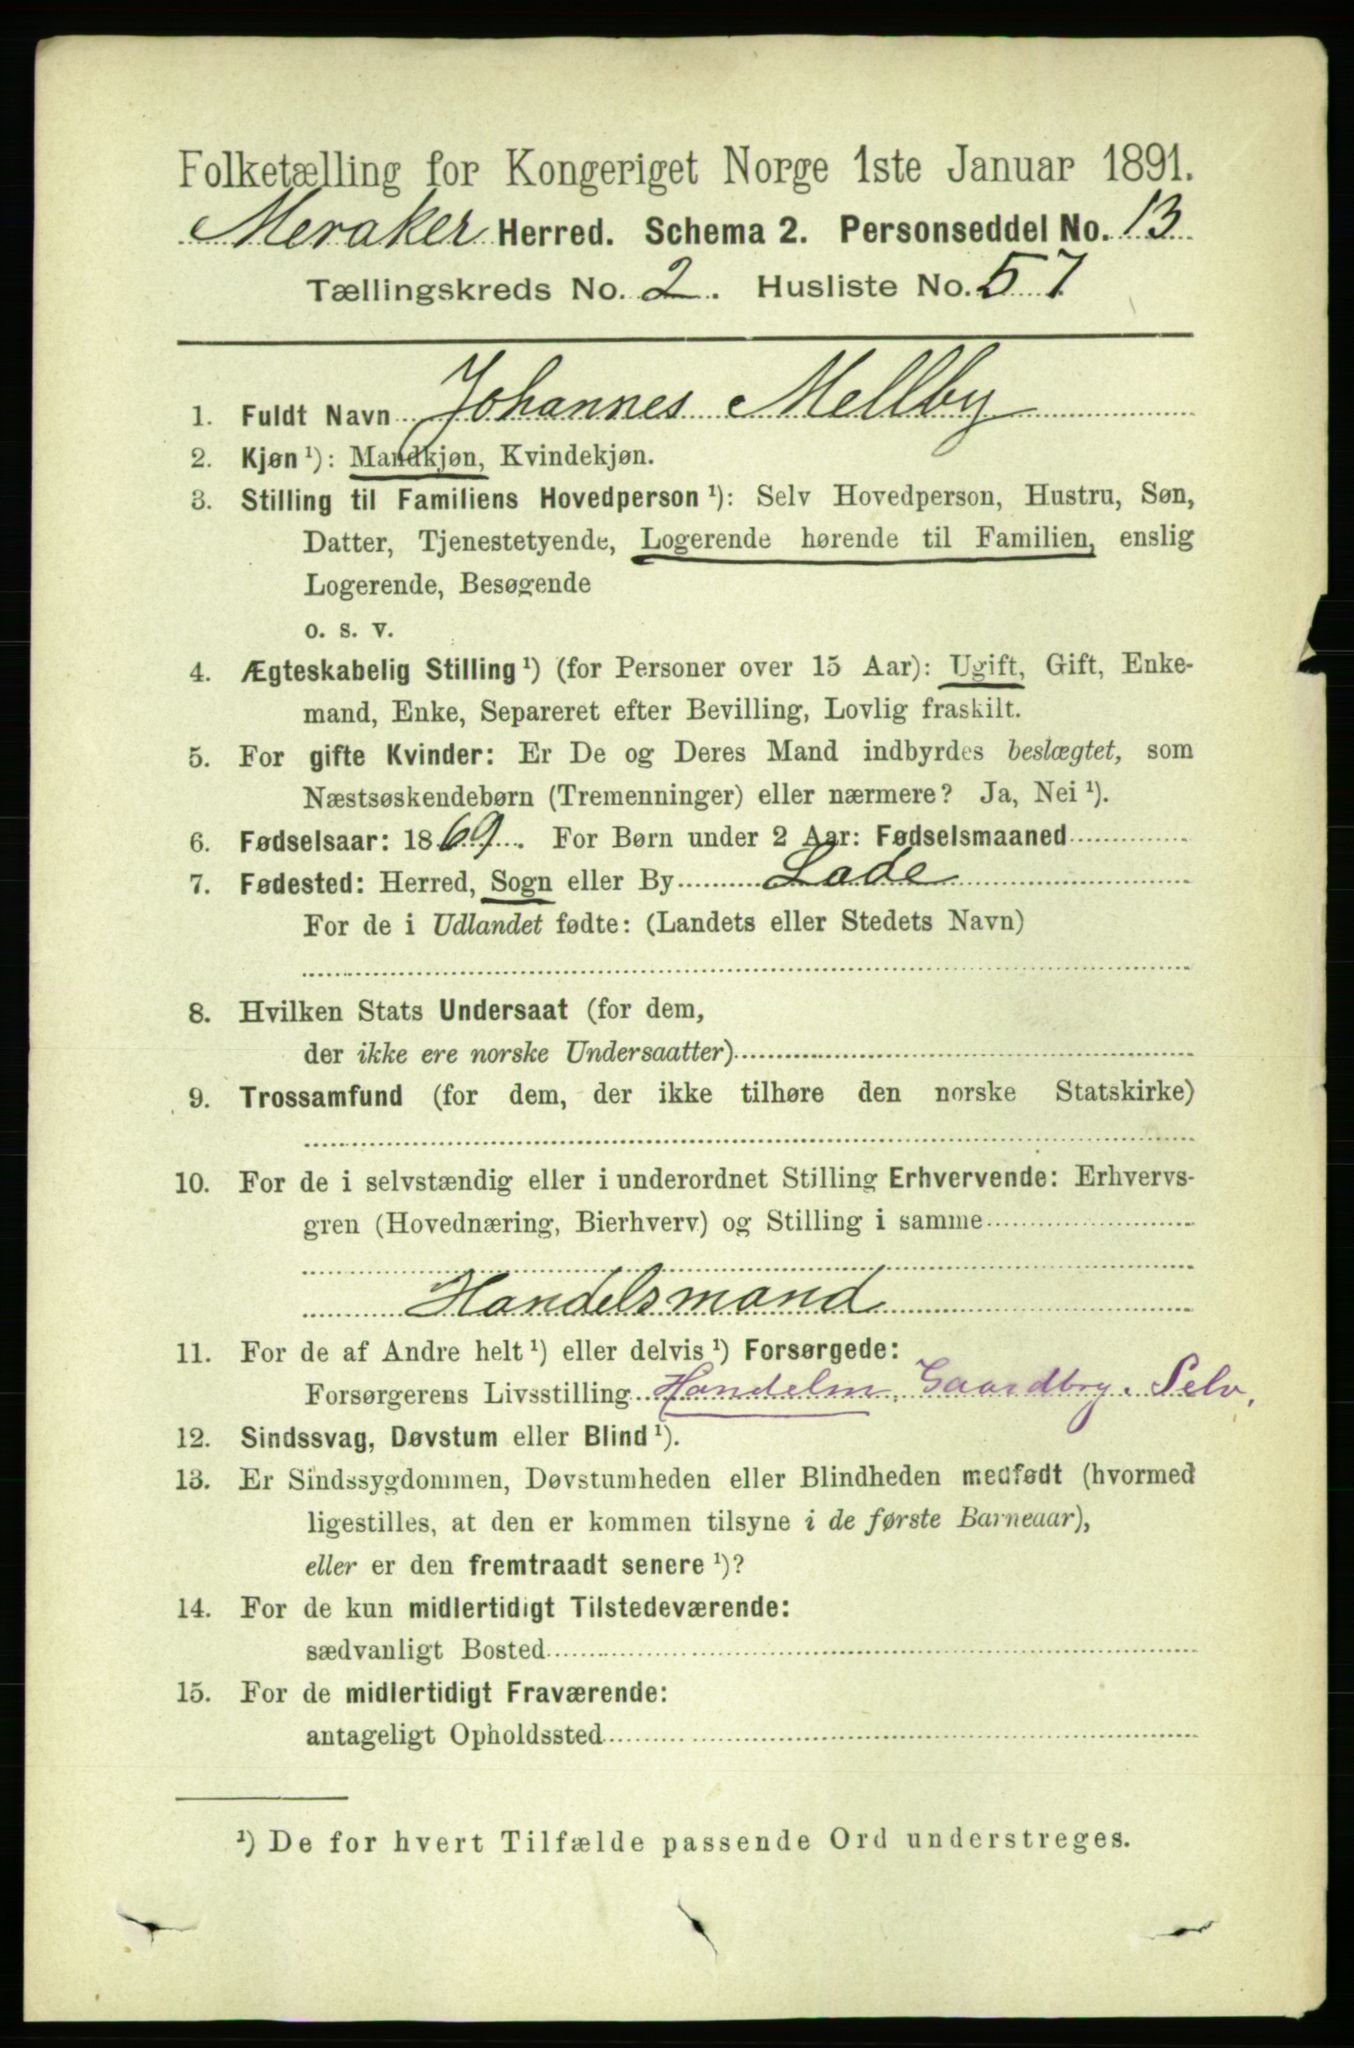 Folketælling for Kongeriget Norge 1ste Januar 1891.
Meraker Herred. Schema 2. Personseddel No. 13
Tællingskreds No. 2. Husliste No. 57
1. Fuldt Navn Johannes Mellby
2. Kjøn ¹): Mandkjøn, Kvindekjøn.
3. Stilling til Familiens Hovedperson ¹): Selv Hovedperson, Hustru, Søn,
Datter, Tjenestetyende, Logerende hørende til Familien, enslig
Logerende, Besøgende
o. s. v.
4. Ægteskabelig Stilling ¹) (for Personer over 15 Aar): Ugift, Gift, Enke-
mand, Enke, Separeret efter Bevilling, Lovlig fraskilt.
5. For gifte Kvinder: Er De og Deres Mand indbyrdes beslægtet, som
Næstsøskendebørn (Tremenninger) eller nærmere? Ja, Nei ¹).
6. Fødselsaar: 1869. For Børn under 2 Aar: Fødselsmaaned
7. Fødested: Herred, Sogn eller By Lade
For de i Udlandet fødte: (Landets eller Stedets Navn)
8. Hvilken Stats Undersaat (for dem,
der ikke ere norske Undersaatter)
9. Trossamfund (for dem, der ikke tilhøre den norske Statskirke)
10. For de i selvstændig eller i underordnet Stilling Erhvervende: Erhvervs-
gren (Hovednæring, Bierhverv) og Stilling i samme
Handelsmand
11. For de af Andre helt ¹) eller delvis ¹) Forsørgede:
Forsørgerens Livsstilling Handelm, Gaardbr. Selv,
12. Sindssvag, Døvstum eller Blind ¹).
13. Er Sindssygdommen, Døvstumheden eller Blindheden medfødt (hvormed
ligestilles, at den er kommen tilsyne i de første Barneaar),
eller er den fremtraadt senere ¹)?
14. For de kun midlertidigt Tilstedeværende:
sædvanligt Bosted
15. For de midlertidigt Fraværende:
antageligt Opholdssted
¹) De for hvert Tilfælde passende Ord understreges.